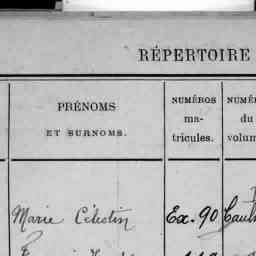 RÉPERTOIRE
PRÉNOMS
ET SURNOMS.
NUMÉROS
ma-
tricules.
du
Marie Célestin Ex. 90